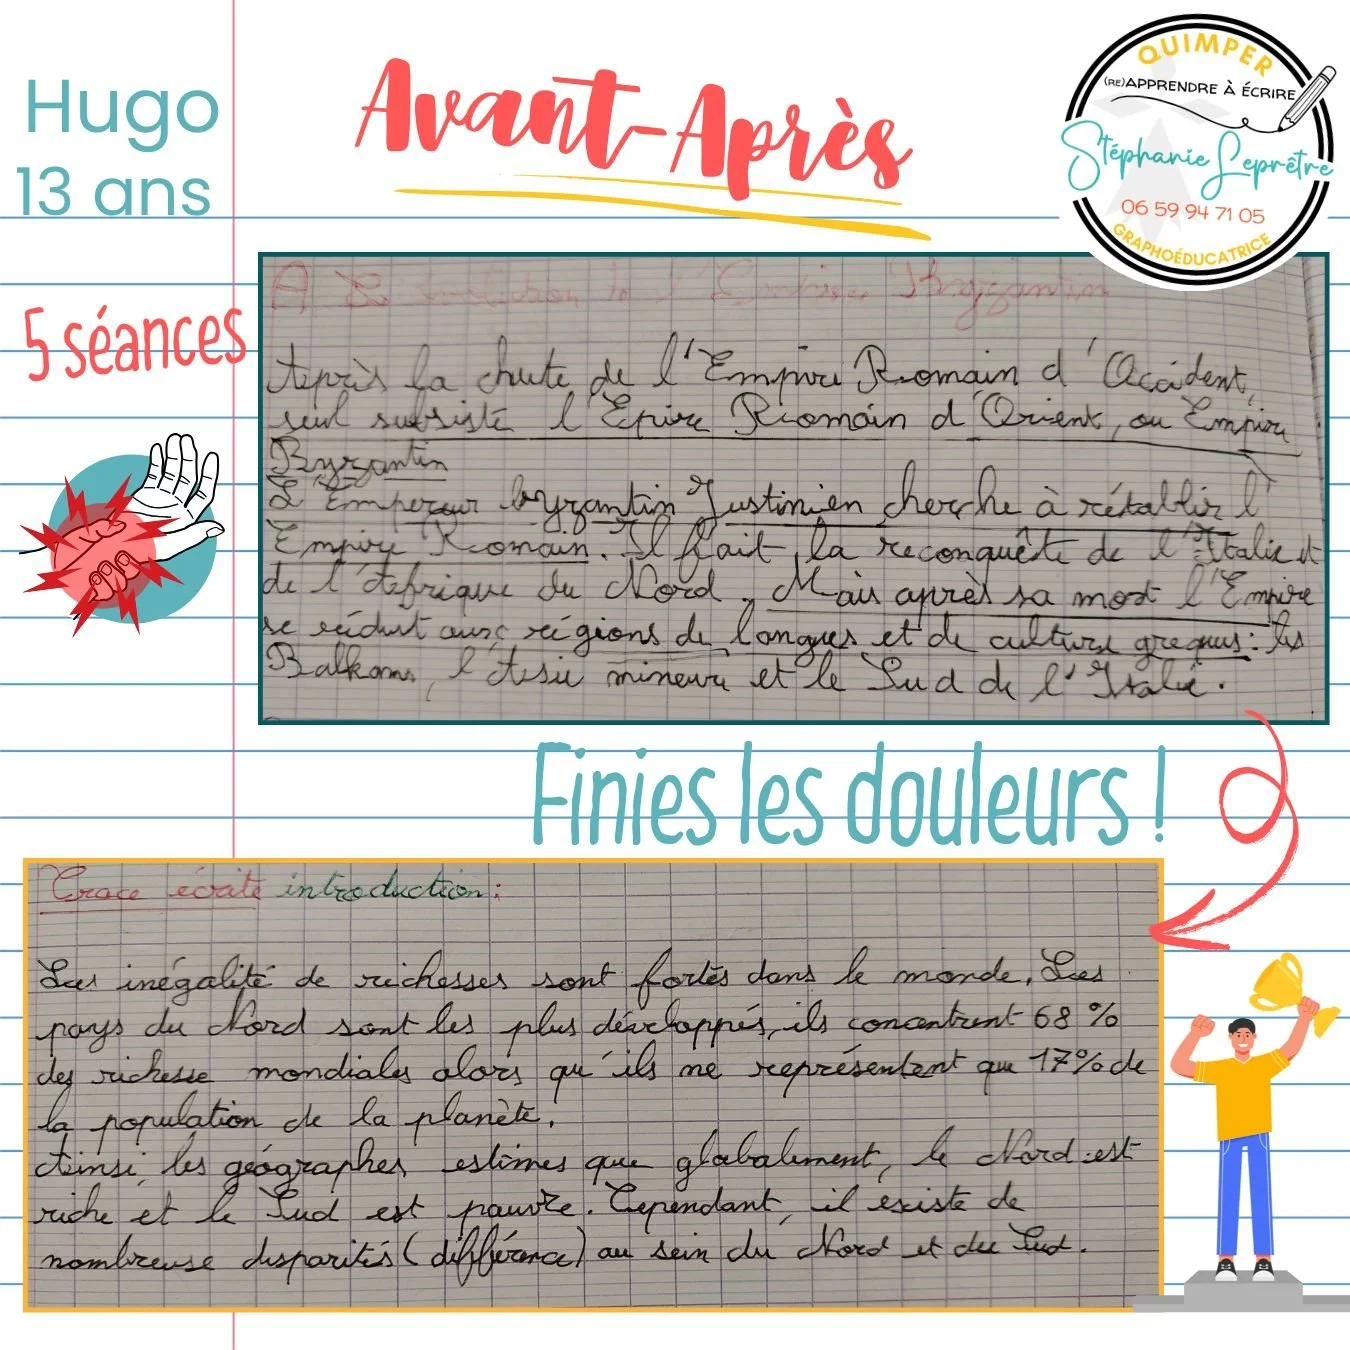 Hugo
13 ans
Avant-Après
QUIMPER
(RE)APPRENDRE À ÉCRIRE
Stéphanie Leprêtre
06 59 94 71 05
GRAPHOÉDUCATRICE
5 séances
A L'évolution de l'Empire Byzantin
Après la chute de l'Empire Romain d'Occident,
seul subsiste l'Epire Romain d'Orient, ou Empire
Byzantin
L'Empereur byzantin Justinien cherche à rétablir l'
Empire Romain. Il fait la reconquête de l'Italie et
de l'Afrique du Nord. Mais après sa mort l'Empire
se réduit aux régions de langues et de culture grecques : les
Balkans, l'Asie mineure et le Sud de l'Italie.
Finies les douleurs !
Trace écrite introduction :
Les inégalité de richesses sont fortes dans le monde. Les
pays du Nord sont les plus développés, ils concentrent 68 %
des richesse mondiales alors qu'ils ne représentent que 17% de
la population de la planète.
Ainsi, les géographes estimes que globalement, le Nord est
riche et le Sud est pauvre. Cependant, il existe de
nombreuse disparités (différence) au sein du Nord et du Sud.